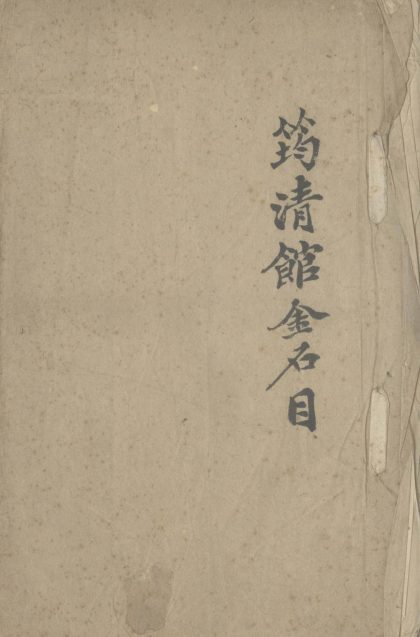 筠清館金石目